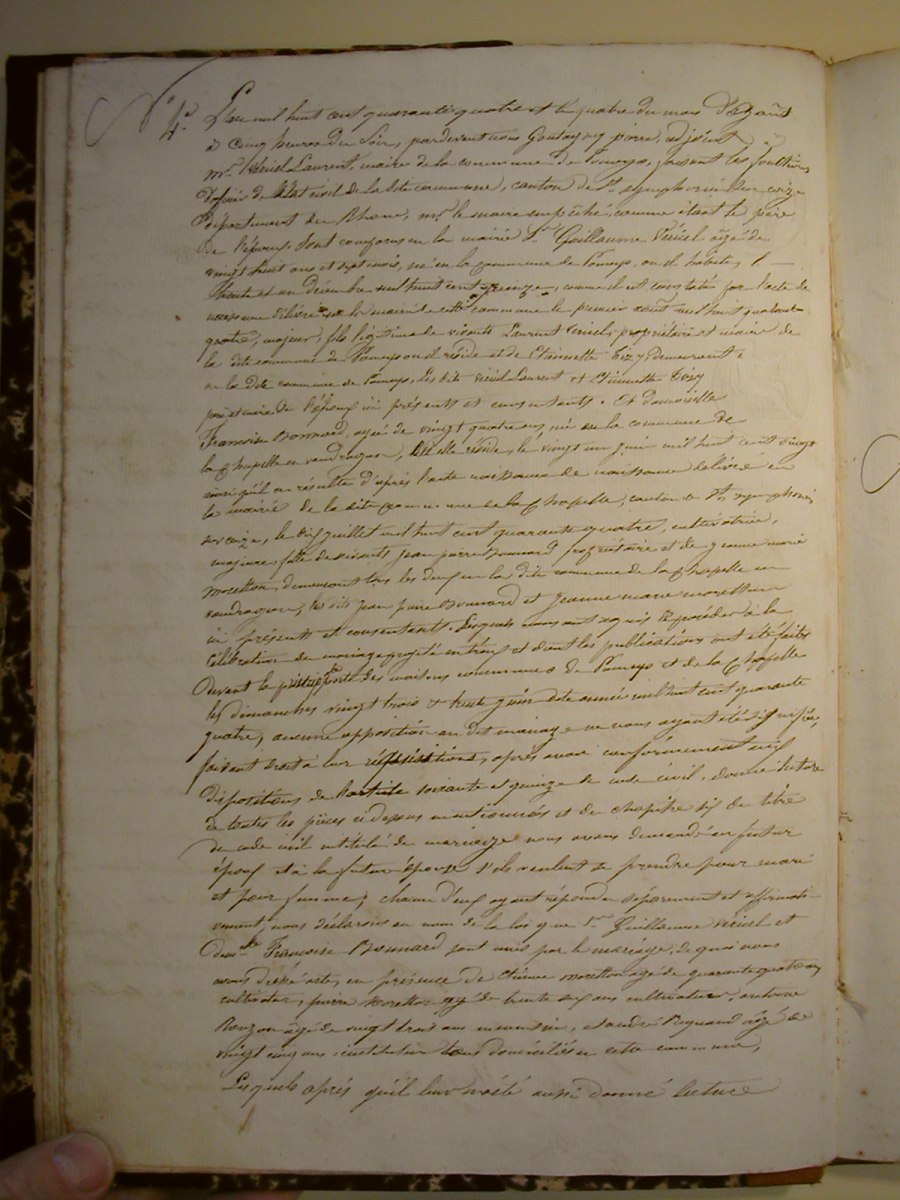 N° 4e L'an mil huit cent quarante quatre et le quatre du mois d'Août
à Cinq heures du Soir, pardevant nous Goutagny pierre, adjoint à
mr. Vericel Laurent, maire de la commune de Pomeys, faisant les fonctions
d'officier de l'état civil de la dite commune, canton de St. symphorien sur coize
département du Rhône, mr. le maire empêché, comme étant le père
de l'époux, sont comparus en la mairie Sr. Guillaume Vericel âgé de
vingt huit ans et sept mois, né en la commune de Pomeys, où il habite, le
trente et un décembre mil huit cent quinze, comme il est constaté par l'acte de
naissance délivré en la mairie de cette commune le premier août mil huit quarante
quatre, majeur, fils légitime de vivants Laurent Vericel, propriétaire et maire de
la dite commune de Pomeys où il réside et de Etiennette Bizy demeurant
en la dite commune de Pomeys, les dits Vericel Laurent et Etiennette Bizy
père et mère de l'époux ici présents et consentants. Et demoiselle
Françoise Bonnard, agée de vingt quatre ans, née en la commune de
la Chapelle en vaudragon, où elle réside, le vingt un juin mil huit cent vingt
ainsi qu'il en résulte d'après l'acte de naissance délivré en
la mairie de la dite commune de la Chapelle, canton de St. symphorien
sur coize, le dix juillet mil huit cent quarante quatre, cultivatrice,
majeure, fille de vivants Jean pierre Bonnard propriétaire et de jeanne marie
Moretton, demeurant tous les deux en la dite commune de la Chapelle en
vaudragon, les dits jean pierre Bonnard et jeanne marie moretton
ici présents et consentants. Lesquels nous ont requis de procéder à la
Célébration du mariage projeté entr'eux et dont les publications ont été faites
devant la principale porte des maisons communes de Pomeys et de la Chapelle
les dimanches vingt trois & trente juin dite année mil huit cent quarante
quatre, aucune opposition au dit mariage ne nous ayant été signifiée,
faisant droit à leur réquisitions, après avoir conformément aux
dispositions de l'article soixante et quinze du code civil, donné lecture
de toutes les pièces ci dessus mentionnées et du chapitre six du titre
du code civil intitulé du mariage nous avons demandé au futur
époux et à la future épouse s'ils veulent se prendre pour mari
et pour femme; chacun d'eux ayant répondu séparement et affirmati-
vement, nous déclarons au nom de la loi que Sr. Guillaume Vericel et
demlle Françoise Bonnard sont unis par le mariage. de quoi nous
avons dressé acte, en présence de Etienne Moretton agé de quarante quatre ans
cultivateur, pierre Moretton agé de trente six ans cultivateur, antoine
Bouzon âgé de vingt trois ans menuisier, et andré Peynaud âgé de
vingt cinq ans, instituteur tous domiciliés en cette commune,
Lesquels après qu'il leur en a été aussi donné lecture